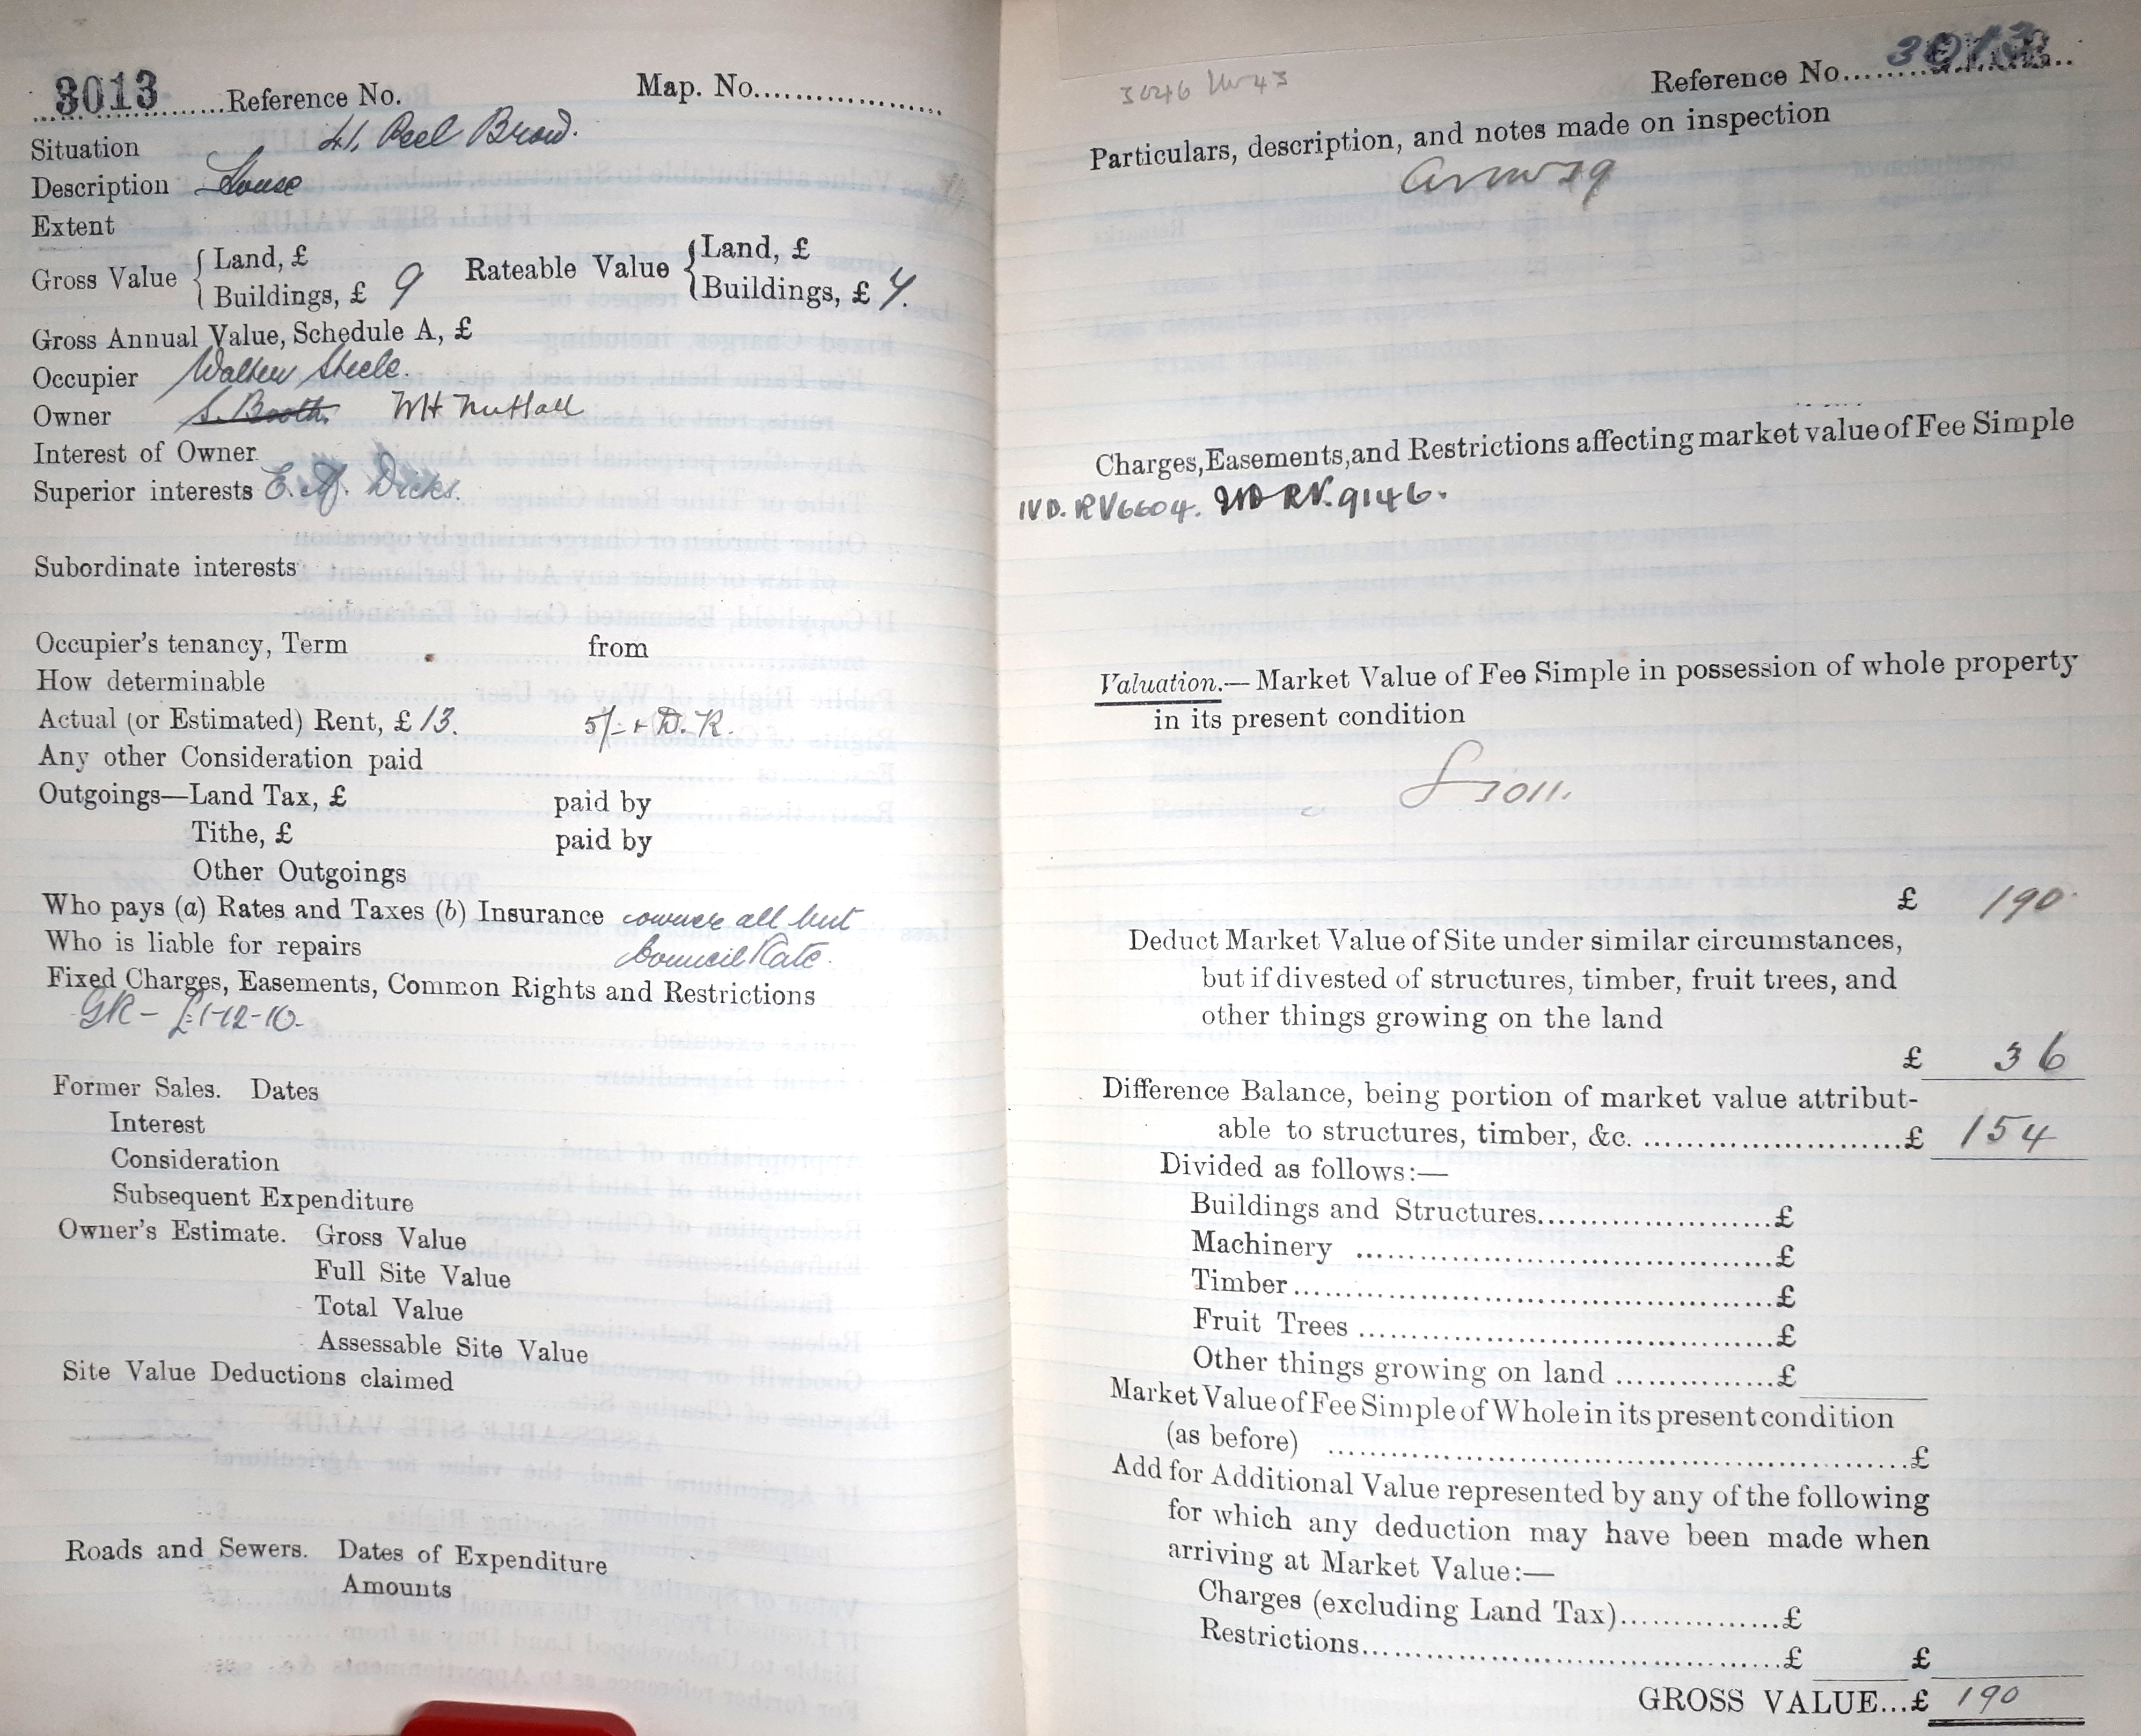 3013 Reference No. Map. No.
Situation 41, Peel Brow.
Description House
Extent
Gross Value { Land, £
Buildings, £ 9
Rateable Value { Land, £
Buildings, £ 7.
Gross Annual Value, Schedule A, £
Occupier Walter Steele.
Owner S. Booth. Wm Nuttall
Interest of Owner
Superior interests E. A. Dicks.
Subordinate interests
Occupier's tenancy, Term from
How determinable
Actual (or Estimated) Rent, £ 13. 5/- + D. R.
Any other Consideration paid
Outgoings—Land Tax, £ paid by
Tithe, £ paid by
Other Outgoings
Who pays (a) Rates and Taxes (b) Insurance owner all but
Who is liable for repairs Council Rate.
Fixed Charges, Easements, Common Rights and Restrictions
GR - £1-12-10-
Former Sales. Dates
Interest
Consideration
Subsequent Expenditure
Owner's Estimate. Gross Value
Full Site Value
Total Value
Assessable Site Value
Site Value Deductions claimed
Roads and Sewers. Dates of Expenditure
Amounts
Reference No. 3013
Particulars, description, and notes made on inspection
Charges, Easements, and Restrictions affecting market value of Fee Simple
IVD. RV6604. IVD RV. 9146.
Valuation.— Market Value of Fee Simple in possession of whole property
in its present condition
£ 190
Deduct Market Value of Site under similar circumstances,
but if divested of structures, timber, fruit trees, and
other things growing on the land
£ 36
Difference Balance, being portion of market value attribut-
able to structures, timber, &c. £ 154
Divided as follows:—
Buildings and Structures £
Machinery £
Timber £
Fruit Trees £
Other things growing on land £
Market Value of Fee Simple of Whole in its present condition
(as before) £
Add for Additional Value represented by any of the following
for which any deduction may have been made when
arriving at Market Value:—
Charges (excluding Land Tax) £
Restrictions £ £
GROSS VALUE...£ 190